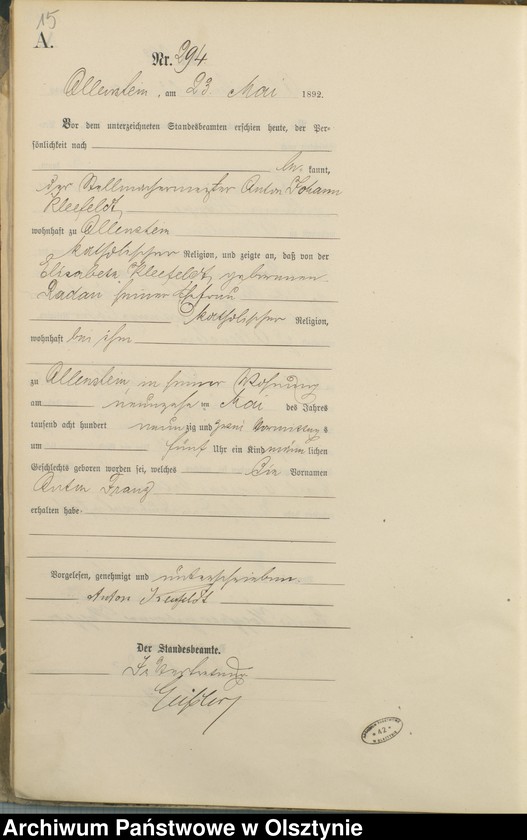 15
A.
Nr. 294
Allenstein, am 23. Mai 1892.
Vor dem unterzeichneten Standesbeamten erschien heute, der Per-
sönlichkeit nach
be kannt,
der Stellmachermeister Anton Johann
Kleefeldt
wohnhaft zu Allenstein
katholischer Religion, und zeigte an, daß von der
Elisabeth Kleefeldt, geborenen
Radau seiner Ehefrau
katholischer Religion,
wohnhaft bei ihm
zu Allenstein in seiner Wohnung
am neunzehn ten Mai des Jahres
tausend acht hundert neunzig und zwei Vormittags
um fünf Uhr ein Kind männ lichen
Geschlechts geboren worden sei, welches die Vornamen
Anton Franz
erhalten habe
Vorgelesen, genehmigt und unterschrieben
Anton Kleefeldt
Der Standesbeamte.
In Vertretung
42
Archiwum Państwowe w Olsztynie